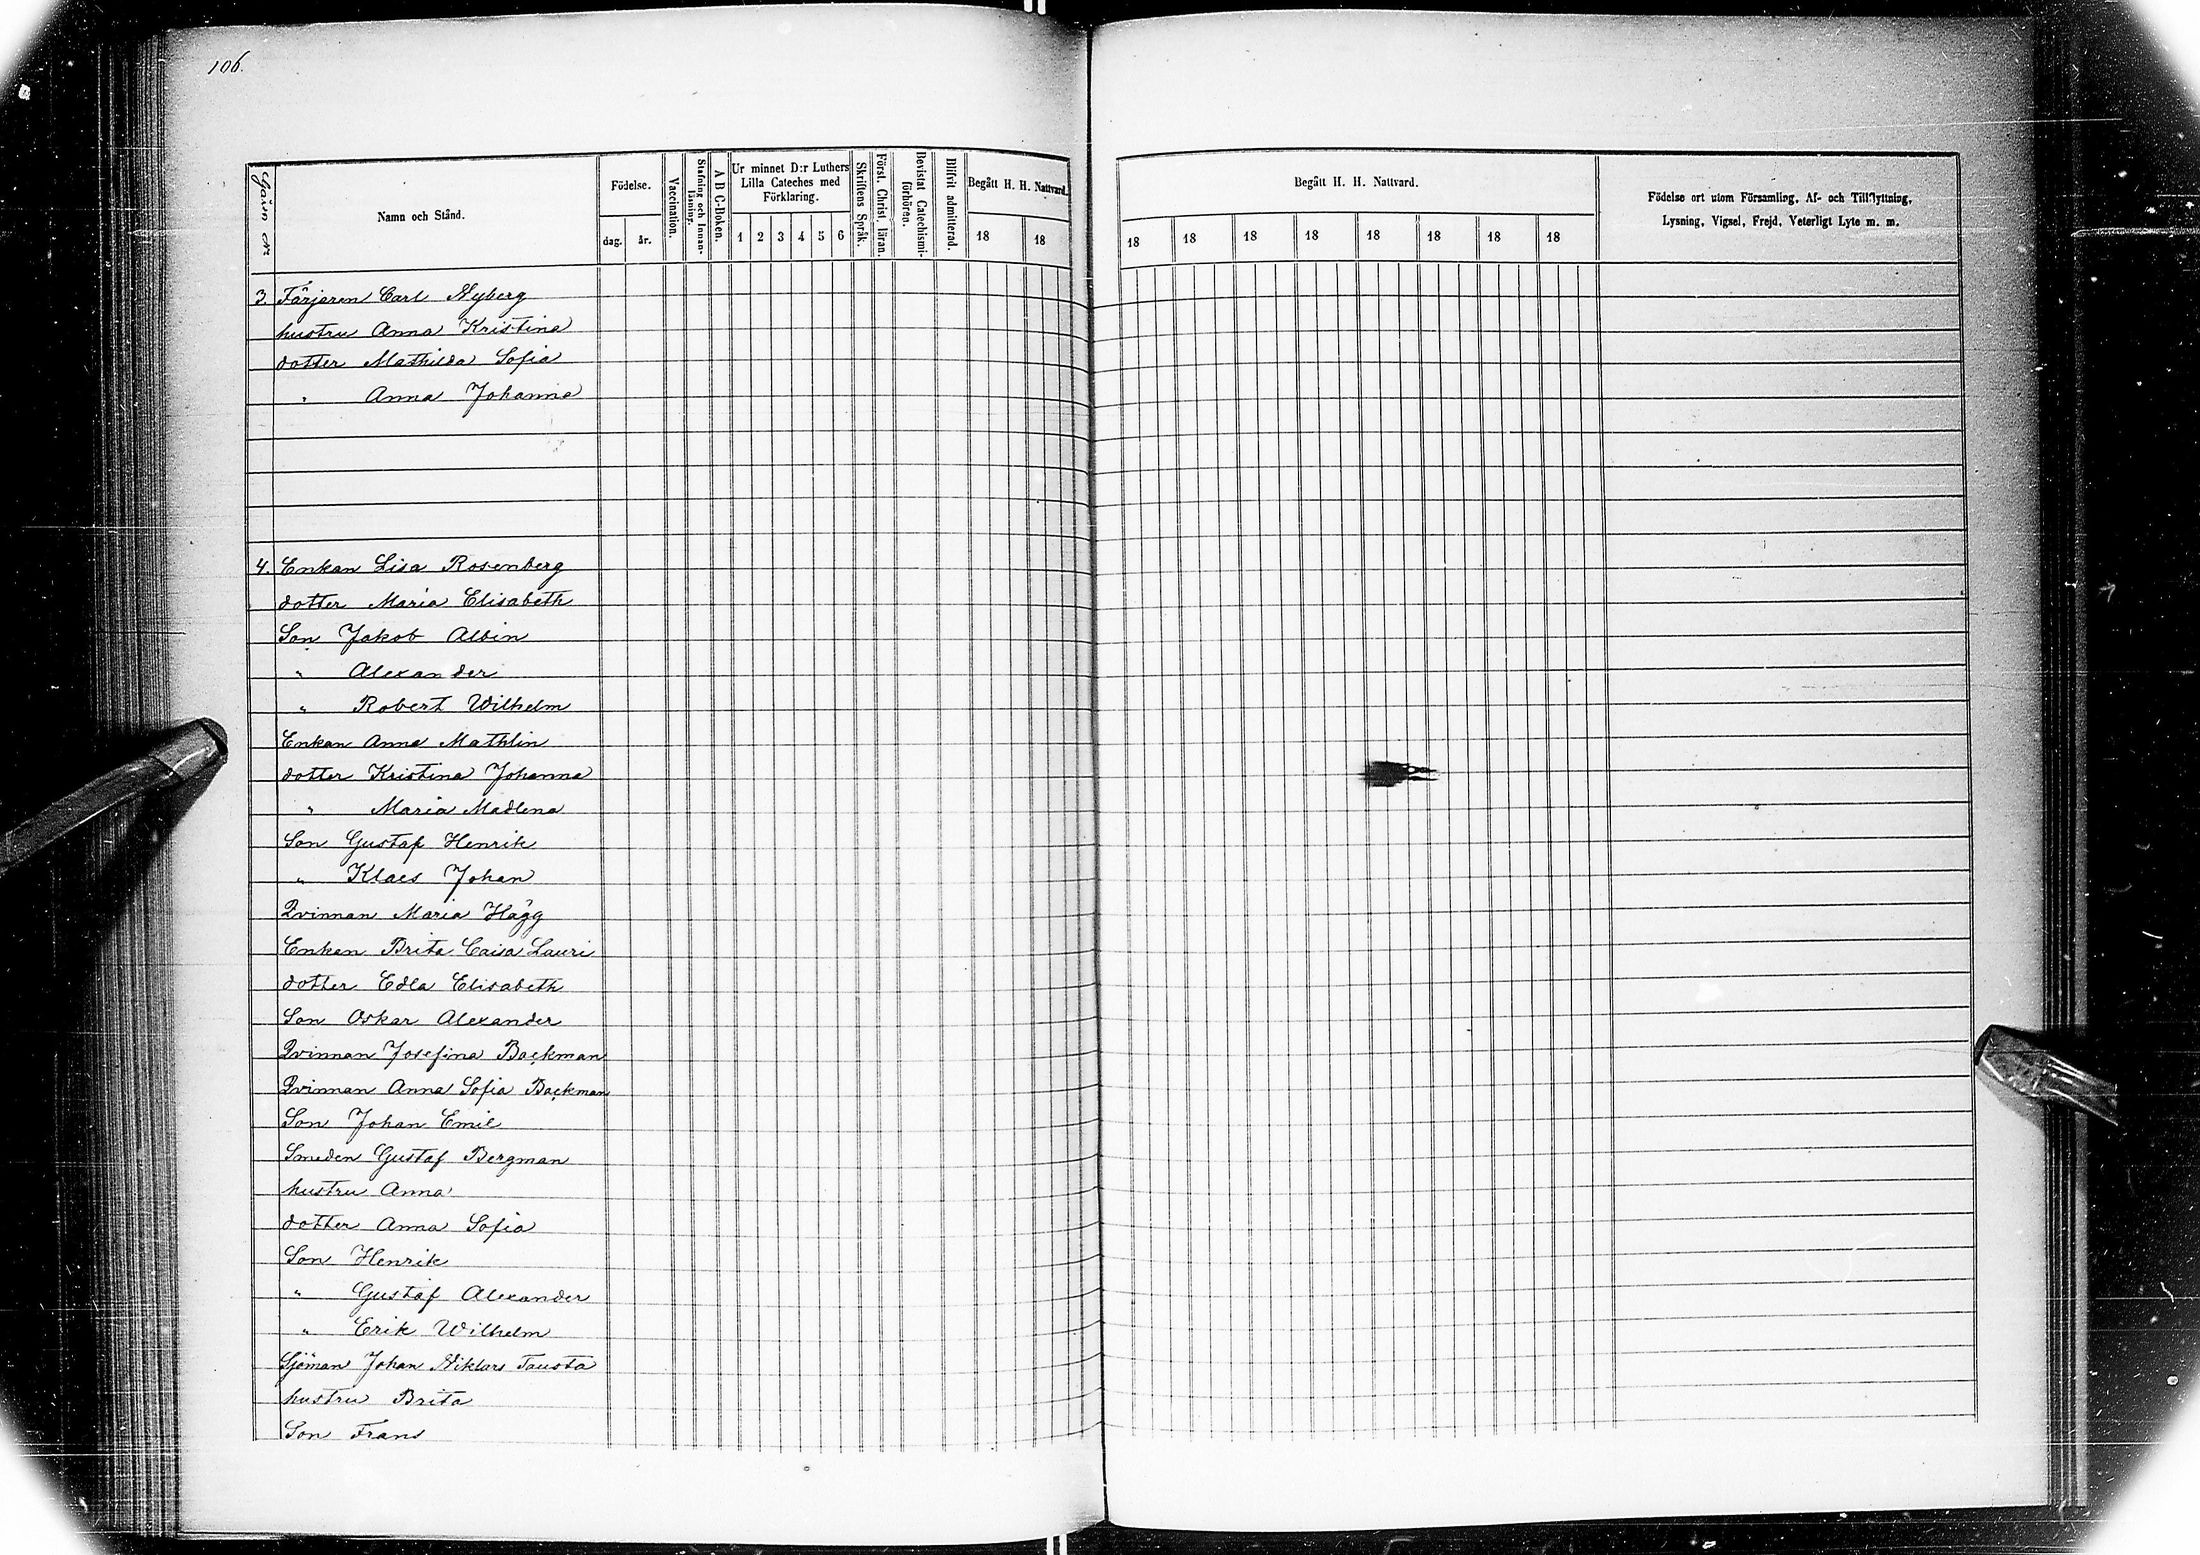 106.
Gårn No
Namn och Stånd.
Födelse.
dag.
år.
Vaccination.
Stafning och Innanläsning.
A B C-Boken.
Ur minnet D:r Luthers
Lilla Cateches med
Förklaring.
1 2 3 4 5 6
Skriftens Språk.
Först. Christ. läran.
Bevistat Catechismi-
förhören.
Blifvit admitterad.
Begått H. H. Nattvard.
18 18
Begått H. H. Nattvard.
18 18 18 18 18 18 18 18
Födelse ort utom Församling, Af- och Tillflyttning,
Lysning, Vigsel, Frejd, Veterligt Lyte m. m.
3. Färjaren Carl Nyberg
hustru Anna Kristina
dotter Mathilda Sofia
" Anna Johanna
4. Enkan Lisa Rosenberg
dotter Maria Elisabeth
Son Jakob Albin
" Alexander
" Robert Wilhelm
Enkan Anna Mathlin
dotter Kristina Johanna
" Maria Madlena
Son Gustaf Henrik
" Klaes Johan
Qvinnan Maria Hägg
Enkan Brita Caisa Lauri
dotter Edla Elisabeth
Son Oskar Alexander
Qvinnan Josefina Backman
Qvinnan Anna Sofia Backman
Son Johan Emil
Smeden Gustaf Bergman
hustru Anna
dotter Anna Sofia
Son Henrik
" Gustaf Alexander
" Erik Wilhelm
Sjöman Johan Niklars Tausta
hustru Brita
Son Frans